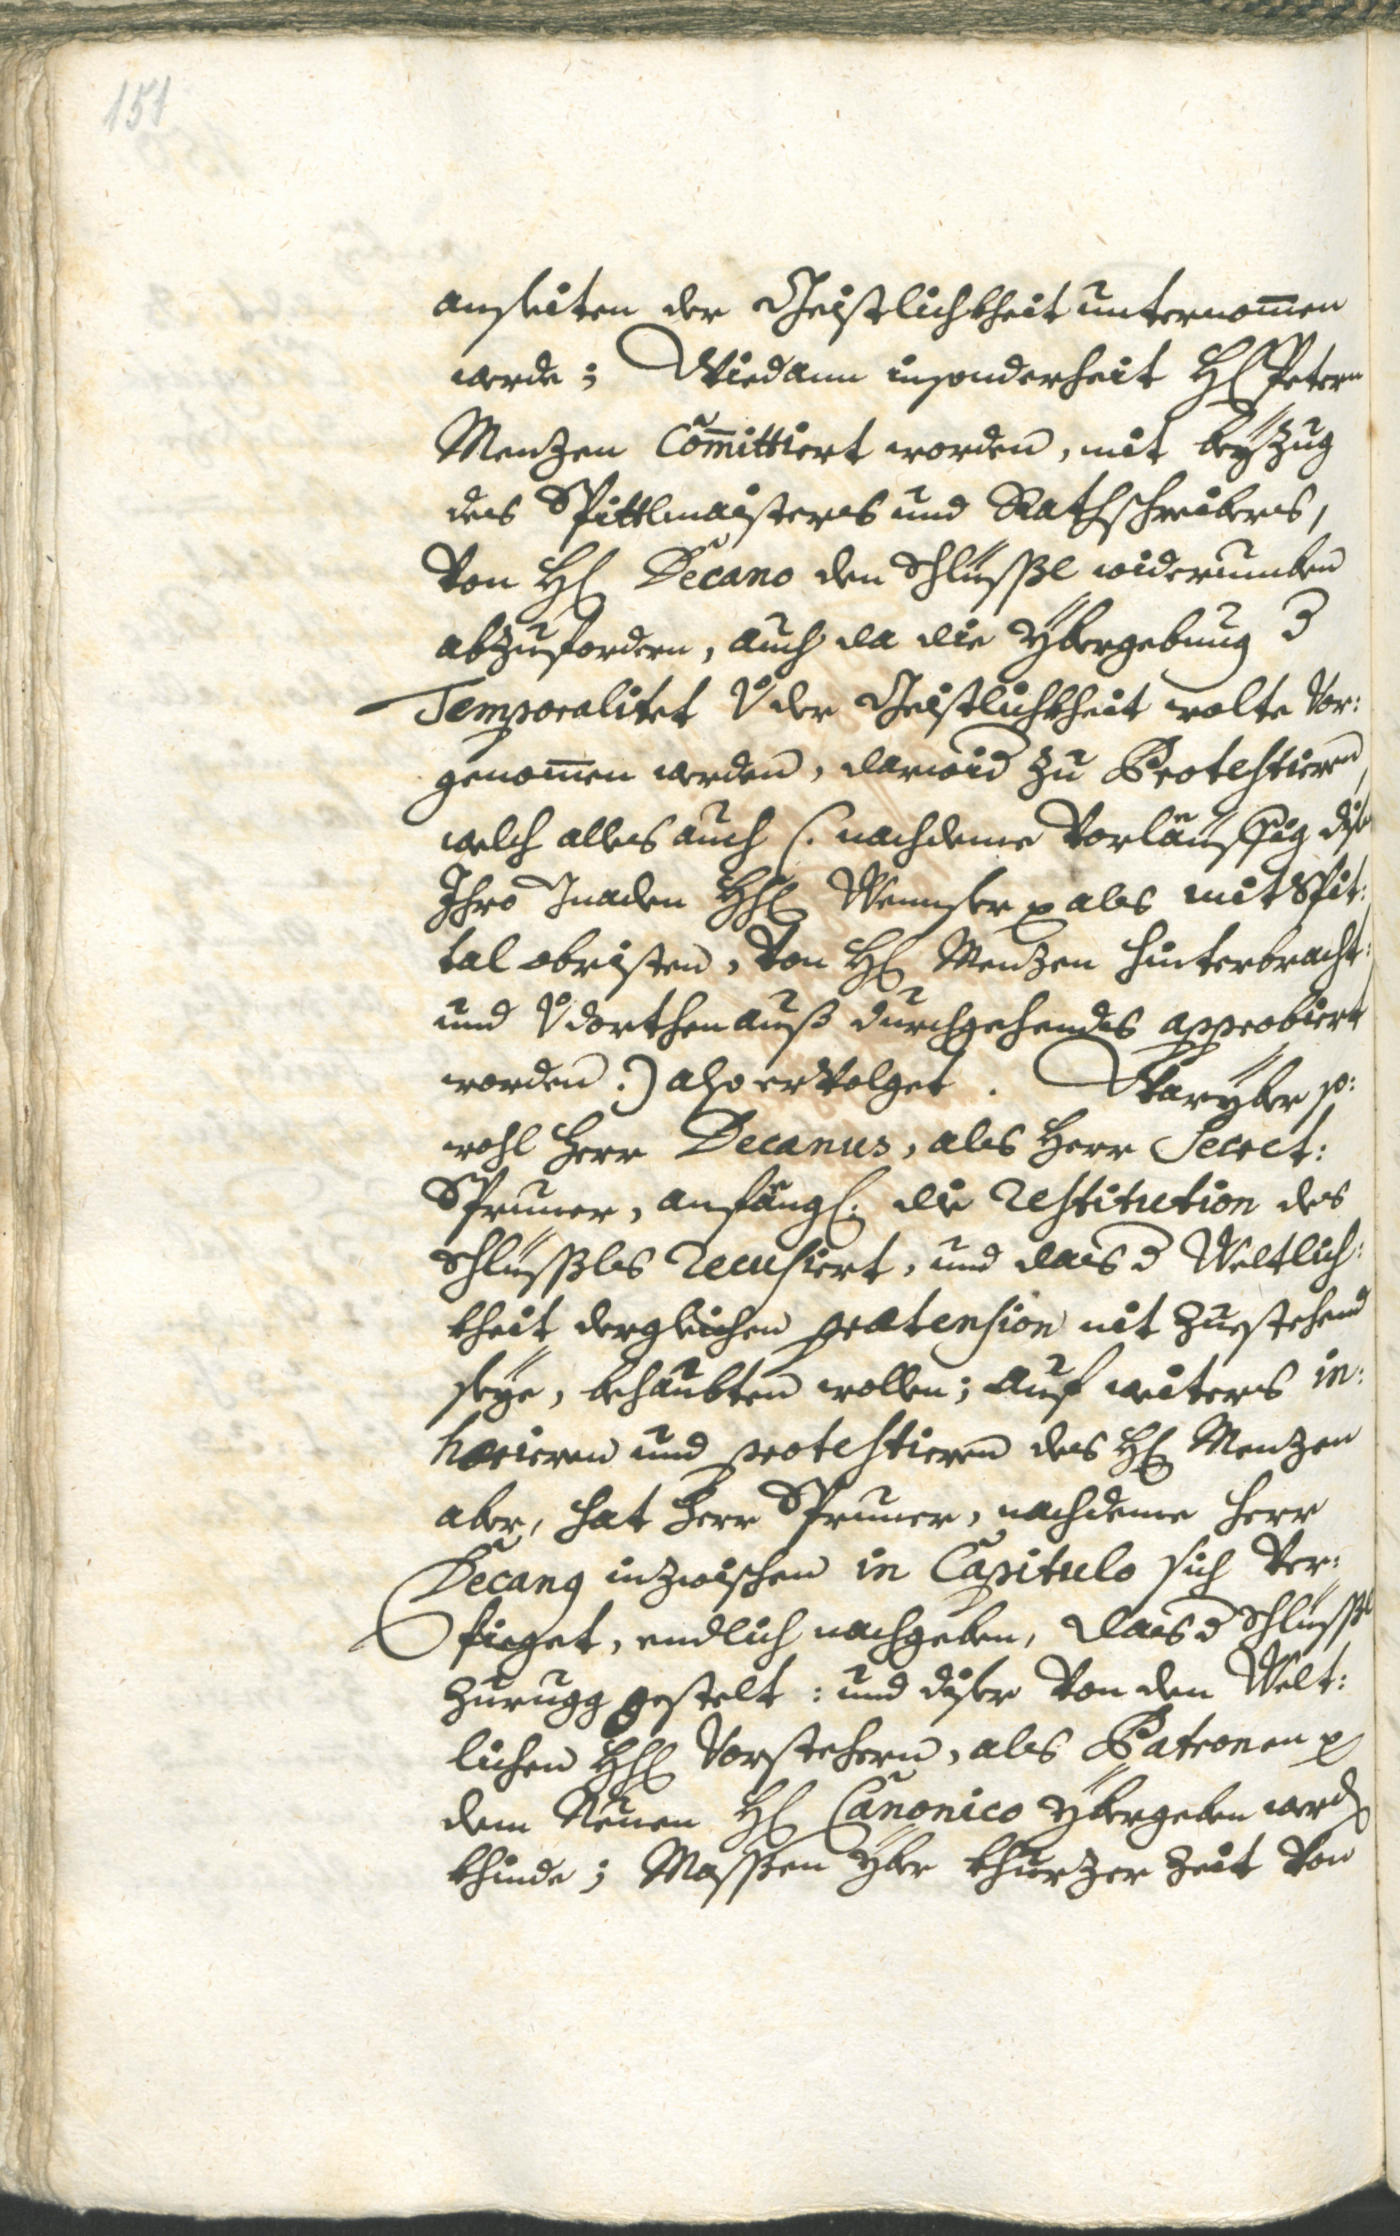 151
anseiten der Geistlichkheit unternom̅en
werde; Wiedann insonderheit H: Petern
Menzen Com̅ittiert worden, mit beÿzug
des Spittlmaisters und Rathschreibers,
Von H: Decano den Schlüssl widerumben
abzufordern, auch da die Ybergebung
Temporalitet der Geistlichkheit wolte Vor:
genom̅en werden, darwid zu Protestieren,
welch alles auch (: nachdeme Vorläuffig dise
Ihro Gnaden HH: als mit Spit:
tal obristen, Von H: Menzen hinterbracht:
und dorthenauß durchgehends approbiert
worden :) also ervolget. Daryber so:
wohl Herr Decanus, als Herr Secret:
Spruner, anfängl: die restitution des
Schlüssls recusiert, und das d Weltlich:
kheit dergleichen prætension nit zuestehend
seÿe, behaubten wollen; Auf weiters in:
hærieren und protestieren des H: Menzen
aber, hat Herr Spruner, nachdeme Herr
Decang inzwischen in Capitulo sich Ver:
fieget, endlich nachgeben, das d Schlüssl
zurugg gestelt: und diser Von den Welt:
lichen HH: Vorstehern, als Patronen
dem Neuen H: Canonico Ybergeben werdn
khinde; Massen yber khurzer Zeit Von